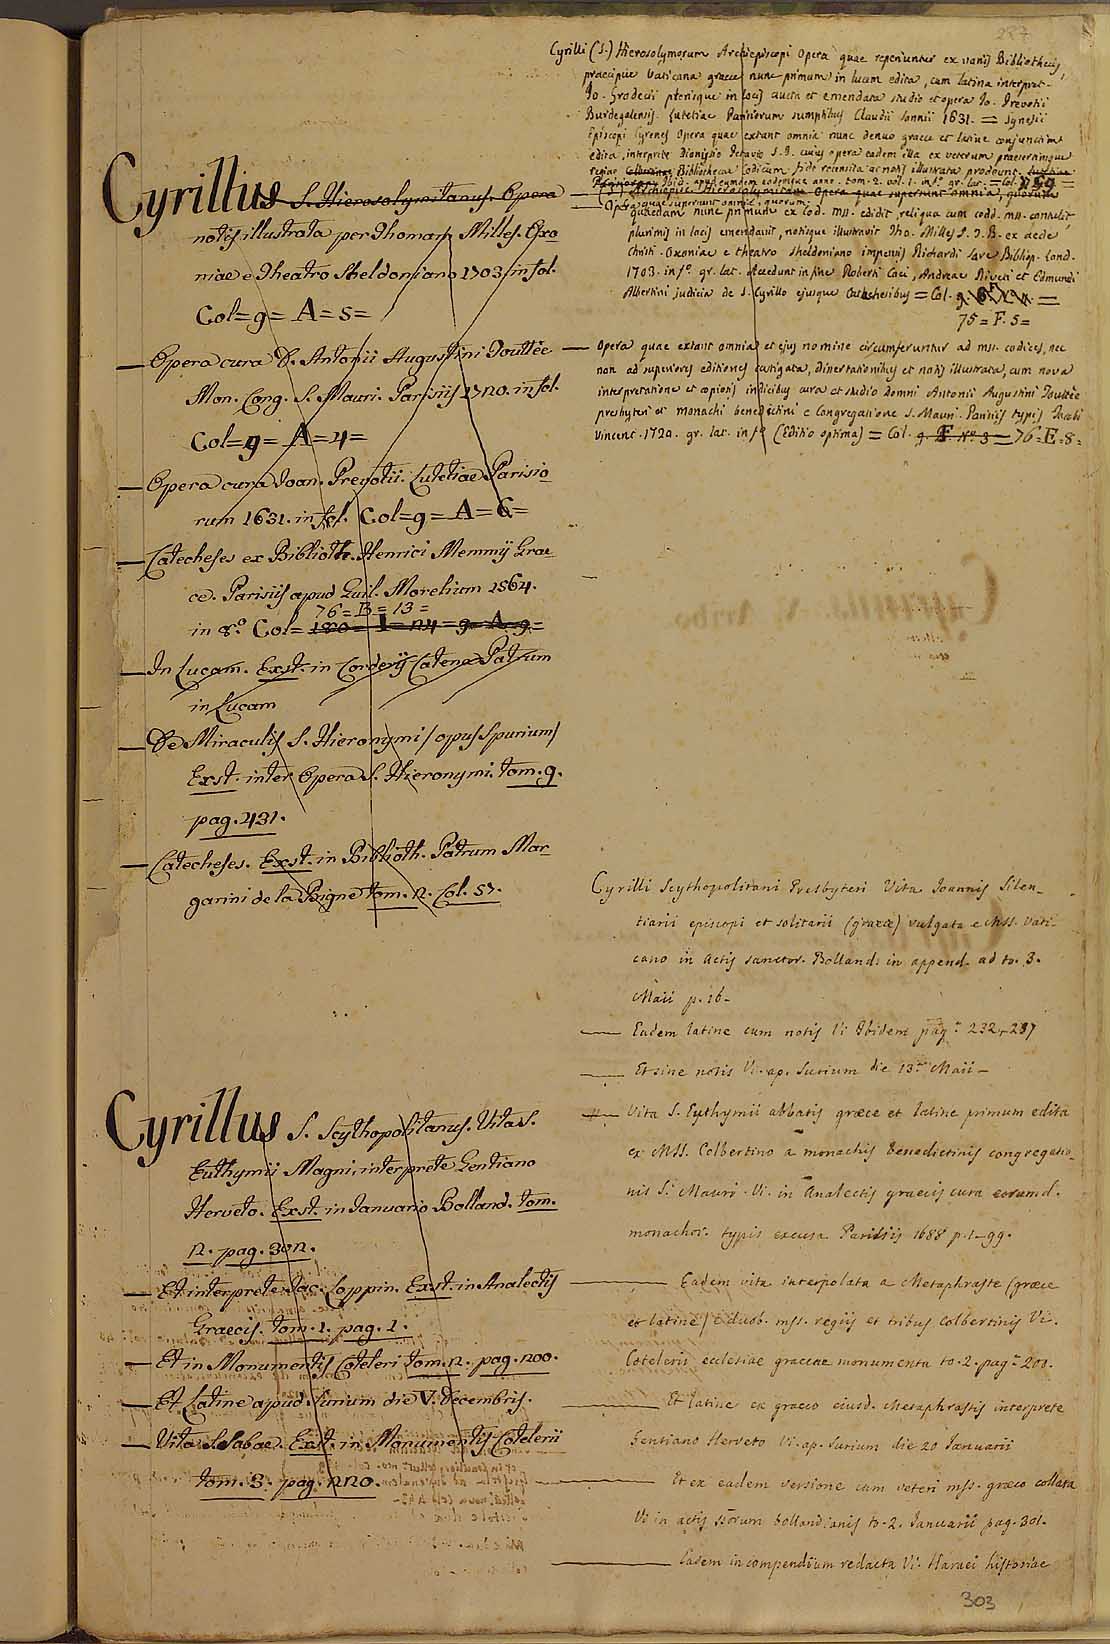 287
Cyrillus S. Hierosolymitanus. Opera
notis illustrata per Thomam Milles. Oxo
niae e Theatro Sheldoniano 1703. in fol.
Col = 9 = A = 5 =
— Opera cura D. Antonii Augustini Touttée
Mon. Cong. S. Mauri. Parisiis 1720. in fol.
Col = 9 = A = 4 =
— Opera cura Joan. Prevotii. Lutetiae Parisio
rum 1631. in fol. Col = 9 = A = 6 =
— Catecheses ex Biblioth. Henrici Memmij Grae
ce. Parisiis apud Guil. Morelium 1564.
76 = B = 13 =
in 8.° Col = 180 = I = 24 = 9 = A 9 =
— In Lucam. Exst. in Corderij Catena Patrum
in Lucam
— De Miraculis S. Hieronymi / opus spurium /
Exst. inter Opera S. Hieronymi. tom. 9.
pag. 431.
— Catecheses. Exst. in Biblioth. Patrum Mar
garini de la Bigne tom. 2. Col. 57.
Cyrillus S. Scythopolitanus. Vita S.
Euthymii Magni, interprete Gentiano
Herveto. Exst. in Januario Bolland. tom.
2. pag. 302.
— Et interprete Jac. Loppin. Exst. in Analectis
Graecis. tom. 1. pag. 1.
— Et in Monumentis Coteleri tom. 2. pag. 200.
— Et Latine apud Surium die V. Decembris.
— Vita S. Sabae. Exst. in Monumentis Cotelerii
tom. 3. pag. 220.
Cyrilli (S.) Hierosolymorum Archiepiscopi Opera quae reperiuntur ex variis Bibliothecis,
praecipue Vaticana graece nunc primum in lucem edita, cum latina interpret.
Jo. Grodecii plerisque in locis aucta et emendata studio et opera Jo. Prevotii
Burdegalensis. Lutetiae Parisiorum sumptibus Claudii Sonnii 1631. = Synesii
Episcopi Cyrenes Opera quae extant omnia nunc denuo graece et latine conjunctim
edita, interprete Dionysio Petavio S. J. cuius opera eadem illa ex veterum praeterrimque
regiae Bibliothecae Codicum fide recensita ac notis illustrata prodeunt.
Ibid. apud eumdem eodemque anno. tom. 2. vol. 1. in f.° gr. lat. = Col.
Archiepisc. Hierosolymitani Opera quae supersunt omnia, quorum
— Opera quae supersunt omnia, quorum
quaedam nunc primum ex Cod. mss. edidit, reliqua cum codd. mss. contulit,
plurimis in locis emendavit, notisque illustravit Tho. Milles S. T. B. ex aede
Christi. Oxoniae e theatro Sheldoniano impensis Richardi Sare Bibliop. Lond.
1703. in f.° gr. lat. Accedunt in fine Roberti Coci, Andreae Riveti et Edmundi
Albertini judicia de S. Cyrillo ejusque Catechesibus = Col. 9.
75 = F. 5 =
— Opera quae extant omnia et ejus nomine circumferuntur ad mss. codices, nec
non ad superiores editiones castigata, dissertationibus et notis illustrata, cum nova
interpretatione et copiosis indicibus cura et studio domni Antonii Augustini Touttée
presbyteri et monachi benedictini e Congregatione S. Mauri. Parisiis typis Jacobi
Vincent. 1720. gr. lat. in f.° (Editio optima) = Col. 9. F N.° 3 = 76 = E = 8 =
Cyrilli Scythopolitani Presbyteri Vita Joannis Silen-
tiarii episcopi et solitarii (graece) vulgata e Mss. Vati-
cano in Actis Sanctor. Bolland. in append. ad to. 3.
Maii p. 16 -
— Eadem latine cum notis Vi. Ibidem pag. 232-237
— Et sine notis Vi. ap. Surium die 13 Maii -
— Vita S. Euthymii abbatis graece et latine primum edita
ex Mss. Colbertino a monachis benedictinis congregatio-
nis S. Mauri. Vi. in Analectis graecis cura eorumd.
monachor. typis excusa Parisiis 1688 p. 1-99.
— Eadem vita interpolata a Metaphraste (graece
et latine) e duob. mss. regiis et tribus Colbertinis Vi.
Cotelerii ecclesiae graecae monumenta to. 2. pag. 200.
— Et latine ex graeco eiusd. Metaphrastis interprete
Gentiano Herveto Vi. ap. Surium die 20 Januarii
— Et ex eadem versione cum veteri mss. graeco collata
Vi. in actis ssorum bollandianis to. 2. Januarii pag. 301.
— Eadem in compendium redacta Vi. Haraei historiae
303